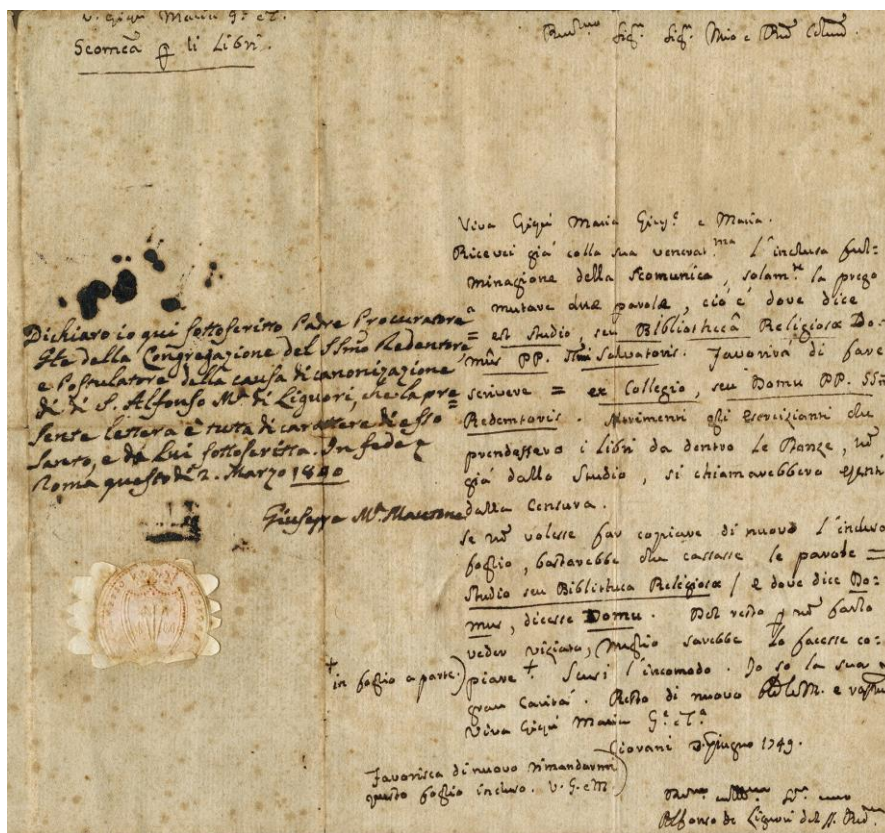 V. Giesù Maria G. e T.
Scomca p li Libri.
Sigr. Sigr. Mio e
Viva Giesù Maria Gius.e e Maria.
Ricevei già colla sua venerat.ma l'inclusa ful=
minazione della Scomunica, solam.te la prego
a mutare due parole, cioè dove dice
= est studio, seu Bibliothecâ Religiosæ Do=
mûs PP. SSmi Salvatoris. Favorirà di fare
scrivere = ex Collegio, seu Domu PP. SSmi
Redemtoris. Altrimenti gli Esercizianti che
prendessero i libri da dentro le stanze, e nõ
già dallo Studio, si chiamarebbero esenti
dalla Censura.
Se nõ volesse far copiare di nuovo l'incluso
foglio, bastarebbe che cassasse le parole =
Studio seu Bibliotheca Religiosæ / e dove dice Do=
mus, dicesse Domu. Del resto p nõ farlo
veder viziato, meglio sarebbe lo facesse co=
piare +. Scusi l'incomodo. Io so la sua
gran Carità. Resto di nuovo
Viva Giesù Maria G.e e T.a
Giovani Giugno 1749.
Alfonso de Liguori del SS. Red.re
+
in foglio a parte.)
Favorisca di nuovo rimandarmi
questo foglio incluso. V. G. e M.
Dichiaro io qui sottoscritto Padre Procuratore
Gle della Congregazione del SSmo Redentore,
e Postulatore della causa di canonizazione
di S. Alfonso Ma. di Liguori, che la pre=
sente lettera è tutta di carattere di esso
Santo, e da Lui sottoscritta. In fede
Roma questo dì 2. Marzo 1840
Giuseppe Ma. Mautone